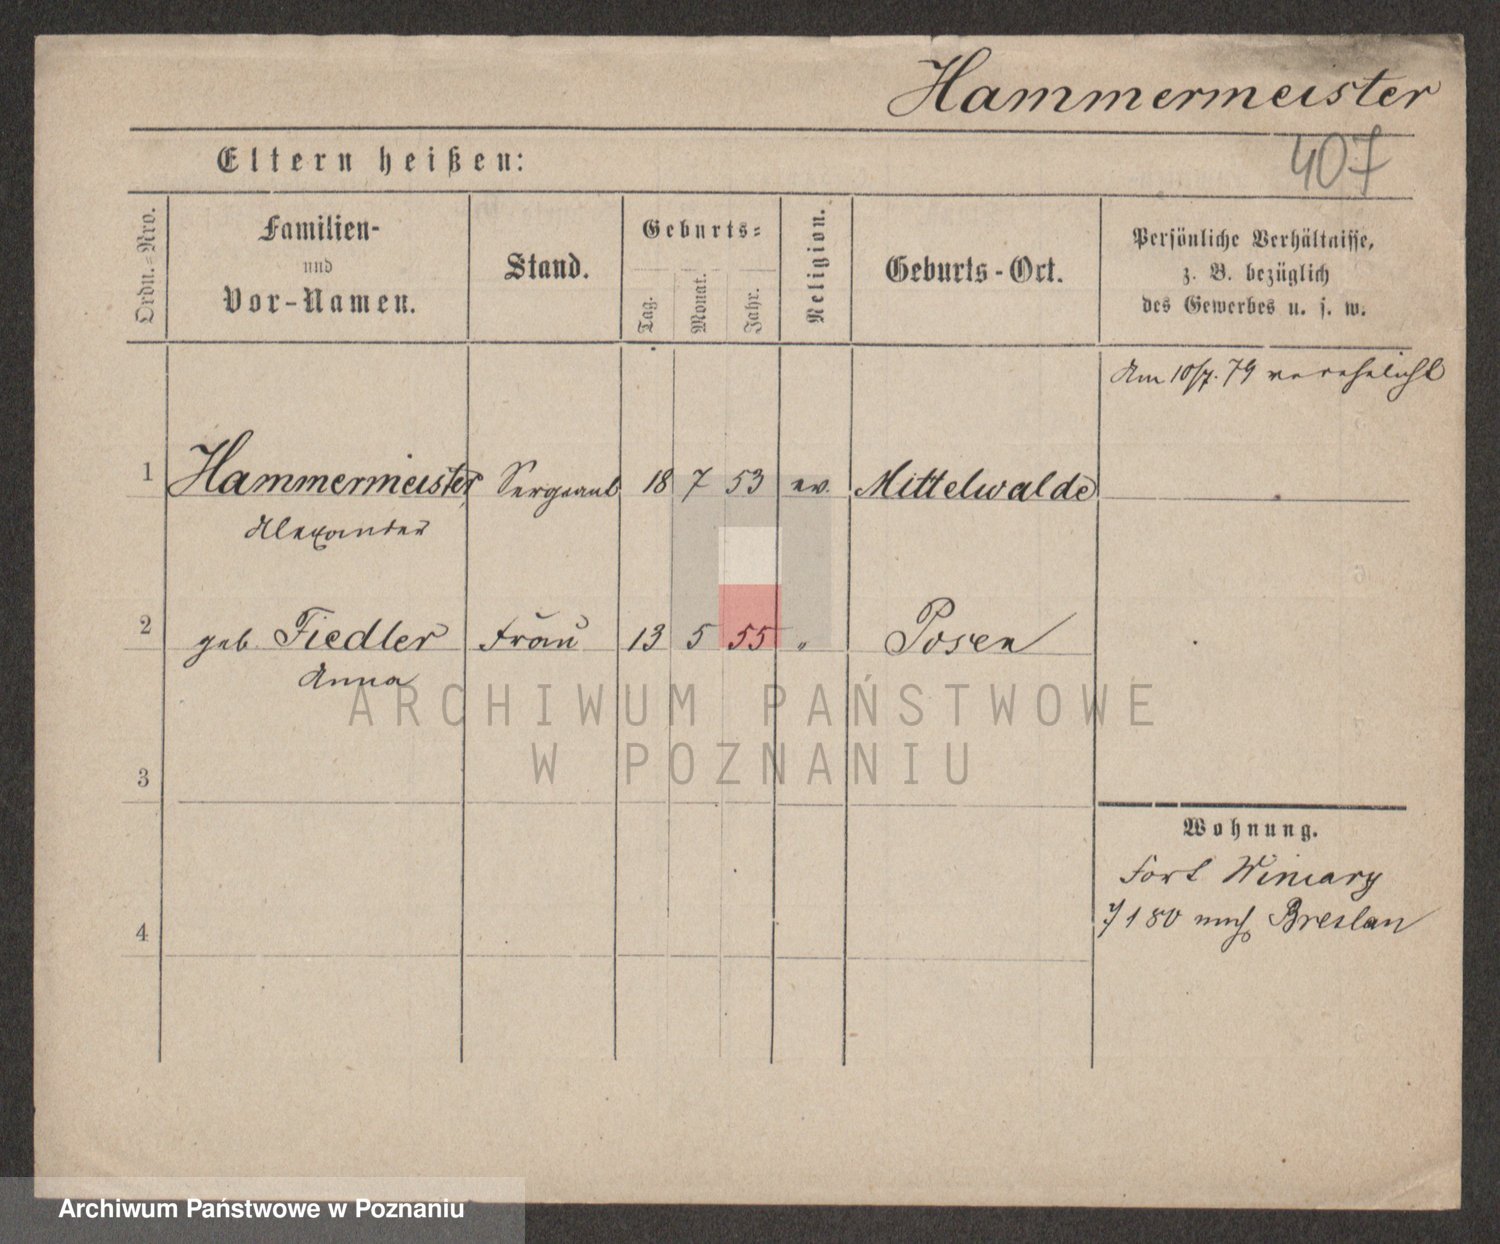 Hammermeister
407
Eltern heißen:
Ordn.=Nro.
Familien-
und
Vor-Namen.
Stand.
Geburts=
Tag.
Monat.
Jahr.
Religion.
Geburts-Ort.
Persönliche Verhältnisse,
z. B. bezüglich
des Gewerbes u. s. w.
Am 10/7. 79 verehelicht
1 Hammermeister Sergeant 18 7 53 ev. Mittelwalde
Alexander
2 geb. Fiedler Frau 13 5 55 " Posen
Anna
ARCHIWUM PAŃSTWOWE
W POZNANIU
3
Wohnung.
Fort Winiary
1 80 nach Breslau
4
Archiwum Państwowe w Poznaniu